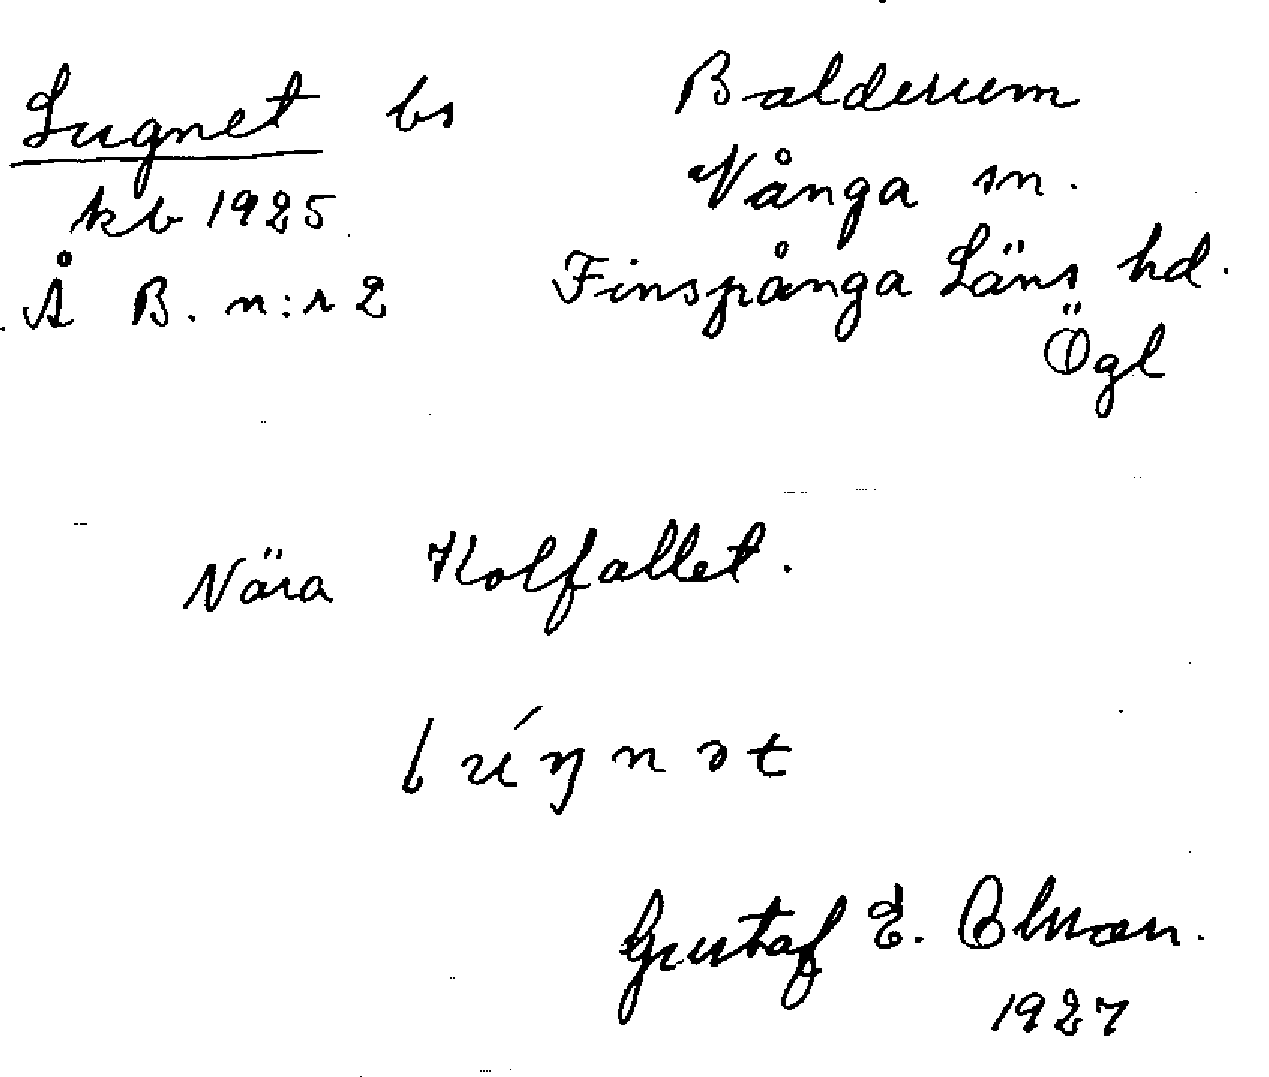 Lugnet bs Balderum
kb 1925 Vånga sn.
Å B. n:r 2 Finspånga Läns hd.
Ögl
Nära Kolfallet.
Gustaf E.
1927